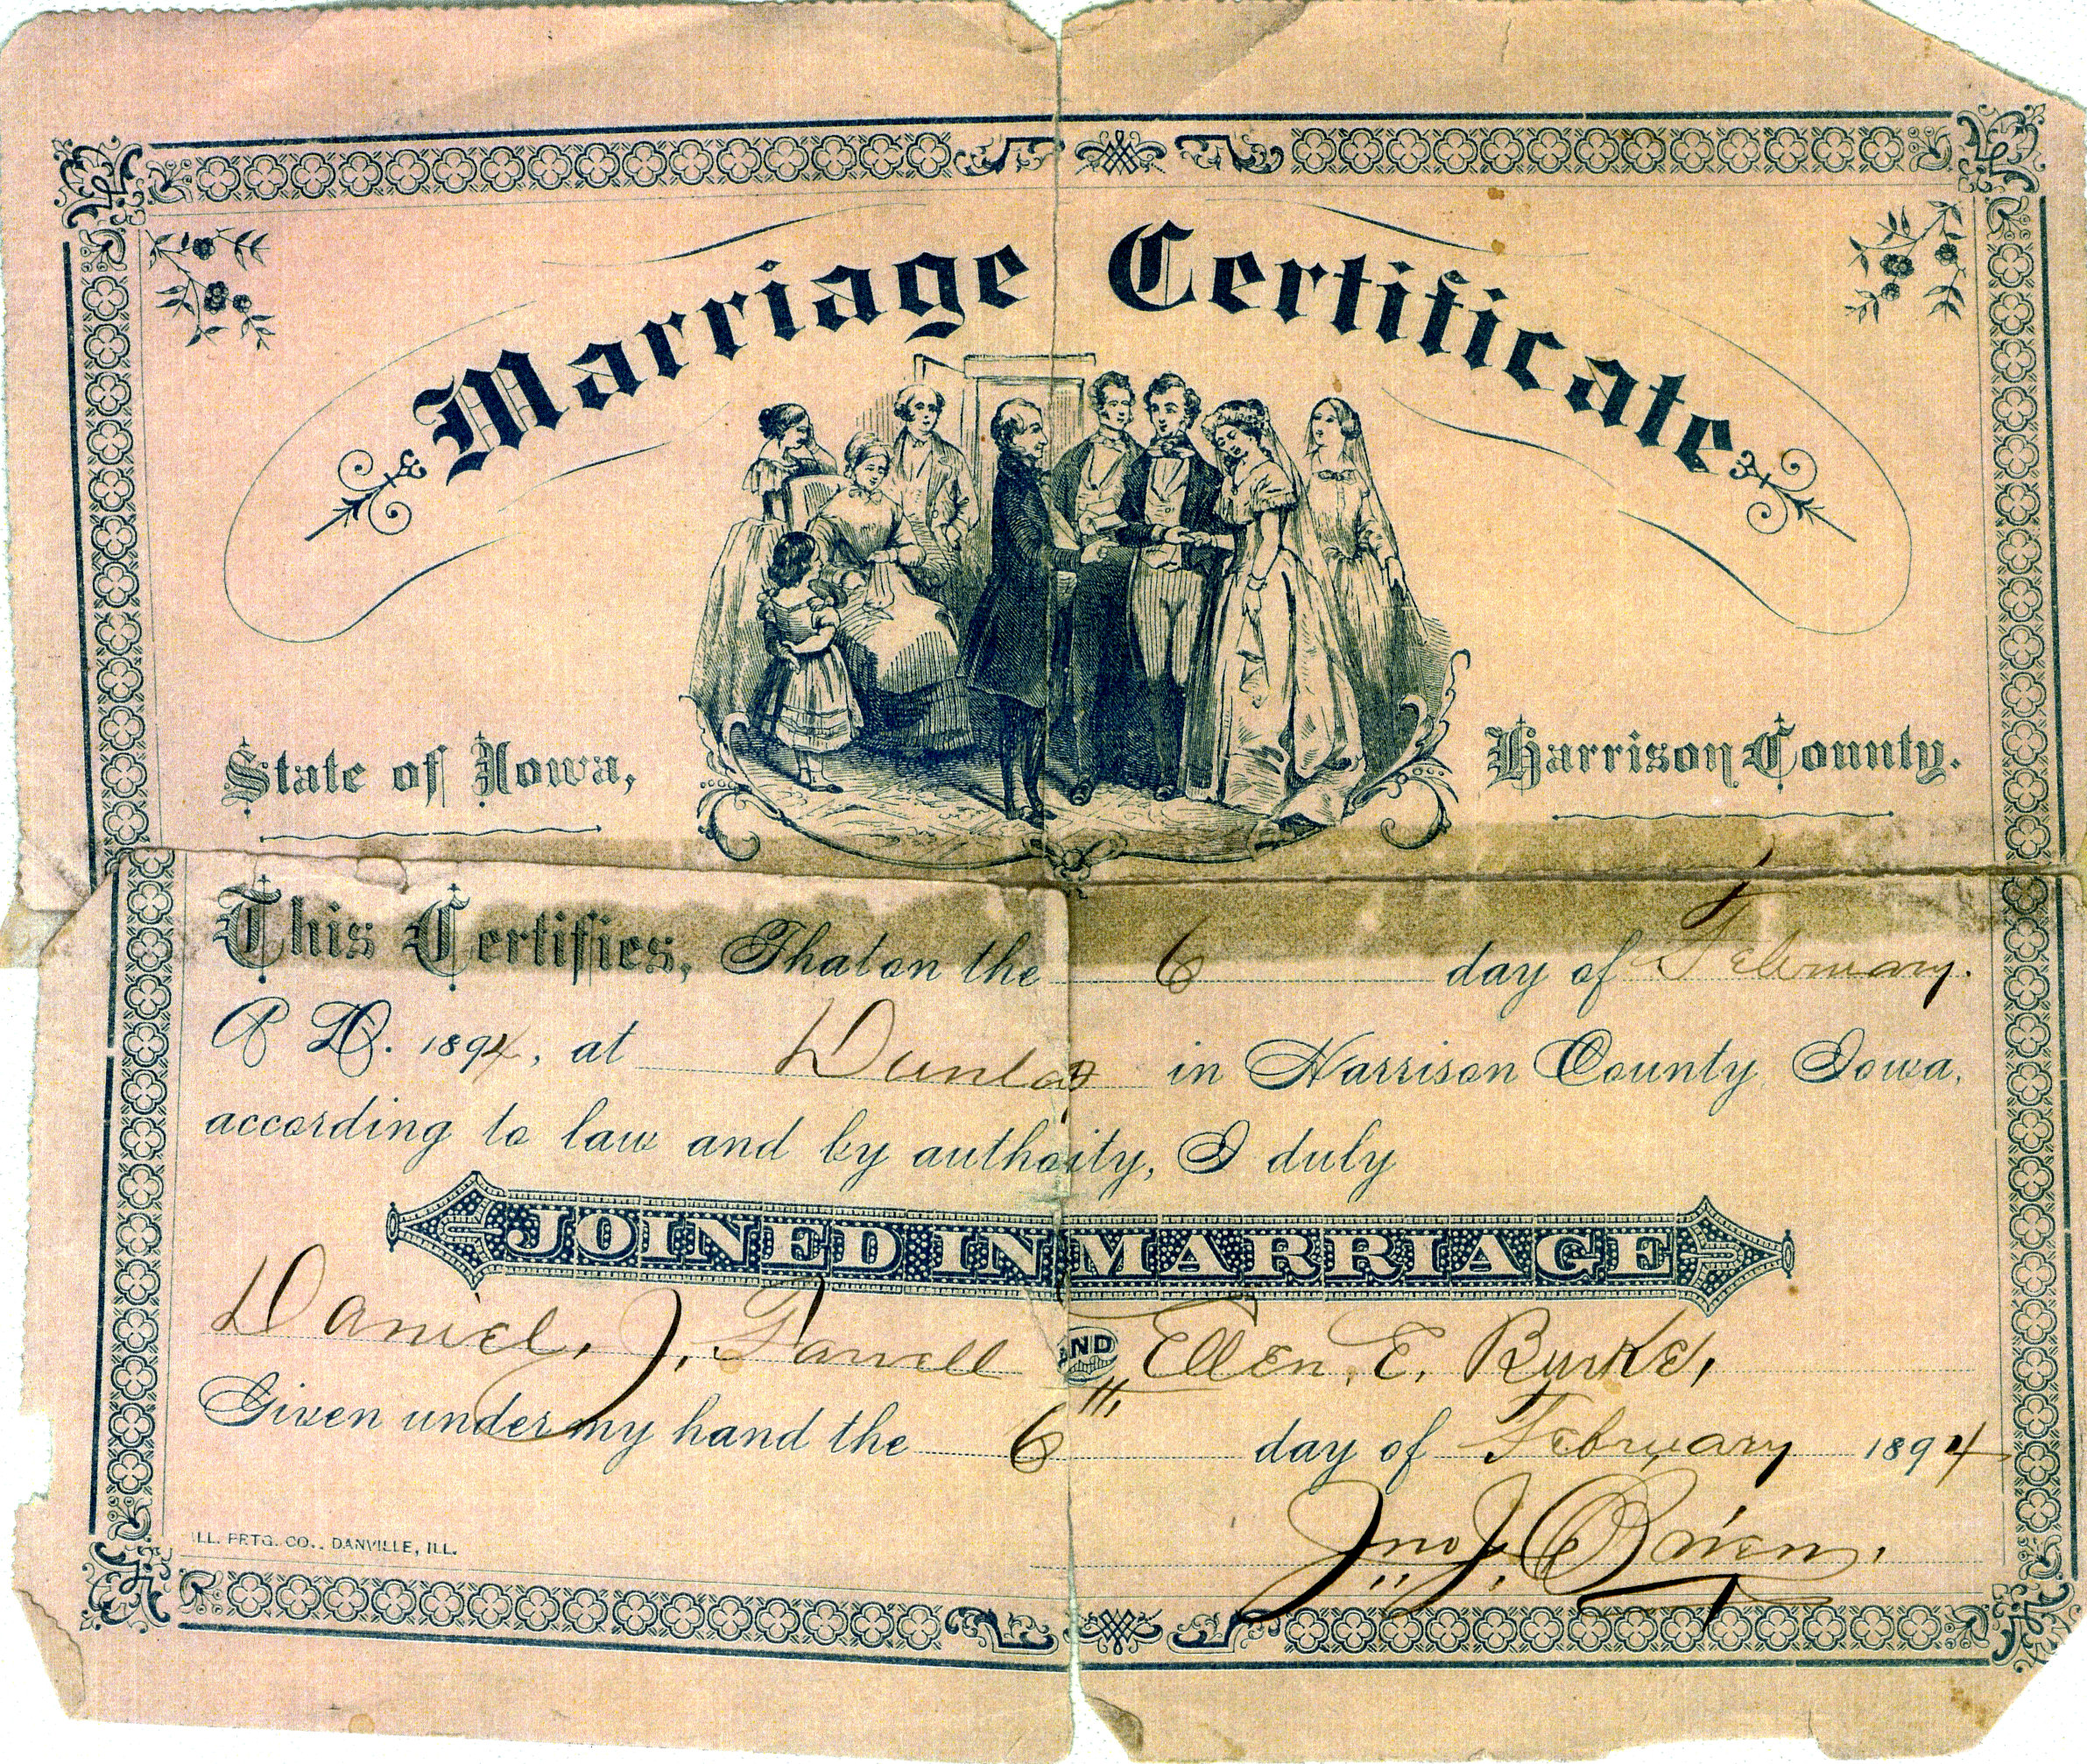 Marriage Certificate
State of Iowa, Harrison County.
This Certifies, That on the 6 day of February.
A D. 1894, at Dunlap in Harrison County Iowa,
according to law and by authority, I duly
JOINED IN MARRIAGE
Daniel, J. Farrell AND Ellen, E. Burke,
Given under my hand the 6th, day of February 1894
Jno J. OBrien,
ILL. PRTG. CO., DANVILLE, ILL.